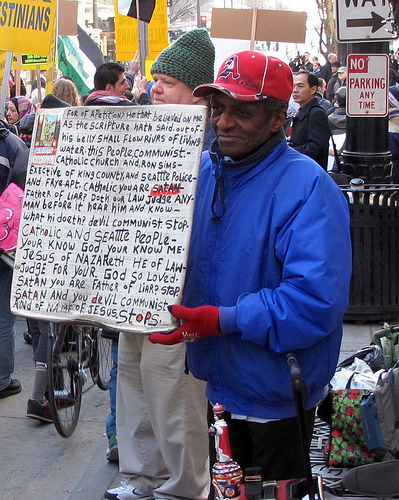 STINIANS
WAY
NO
PARKING
ANY
TIME
A
FOR OF A PETITION) HE that believed on me
AS the SCRIPTURE hATH SAID.OUT.OF.
his belly SHALL FLOW RIVRS OF liviNg
WATER.this PeoPle.commuNist-
CATHOLIC church AND RON SIMS-
EXECUTIVE OF KING COUNTY.AND SEATTLE POLICE-
AND FRYE APT. CAtholic YOU ARE SATAN-
FATHER OF liAR? DOTH OUR LAW JUDGE ANY-
MAN before it hEAR him AND KNOW-
what hi doeth? devil communist. STOP.
CATHOLIC AND SEATTLE PEOPLE-
YOUR KNOW GOD, YOUR KNOW ME-
JESUS OF NAZARETH HE OF LAW-
JUDGE FOR YOUR. GOD SO LOVED.
SATAN YOU ARE FATHER OF LIAR? STOP
SATAN AND YOU dEVIL COMMUNIST
AIND OF NAME OF JESUS STOPS.